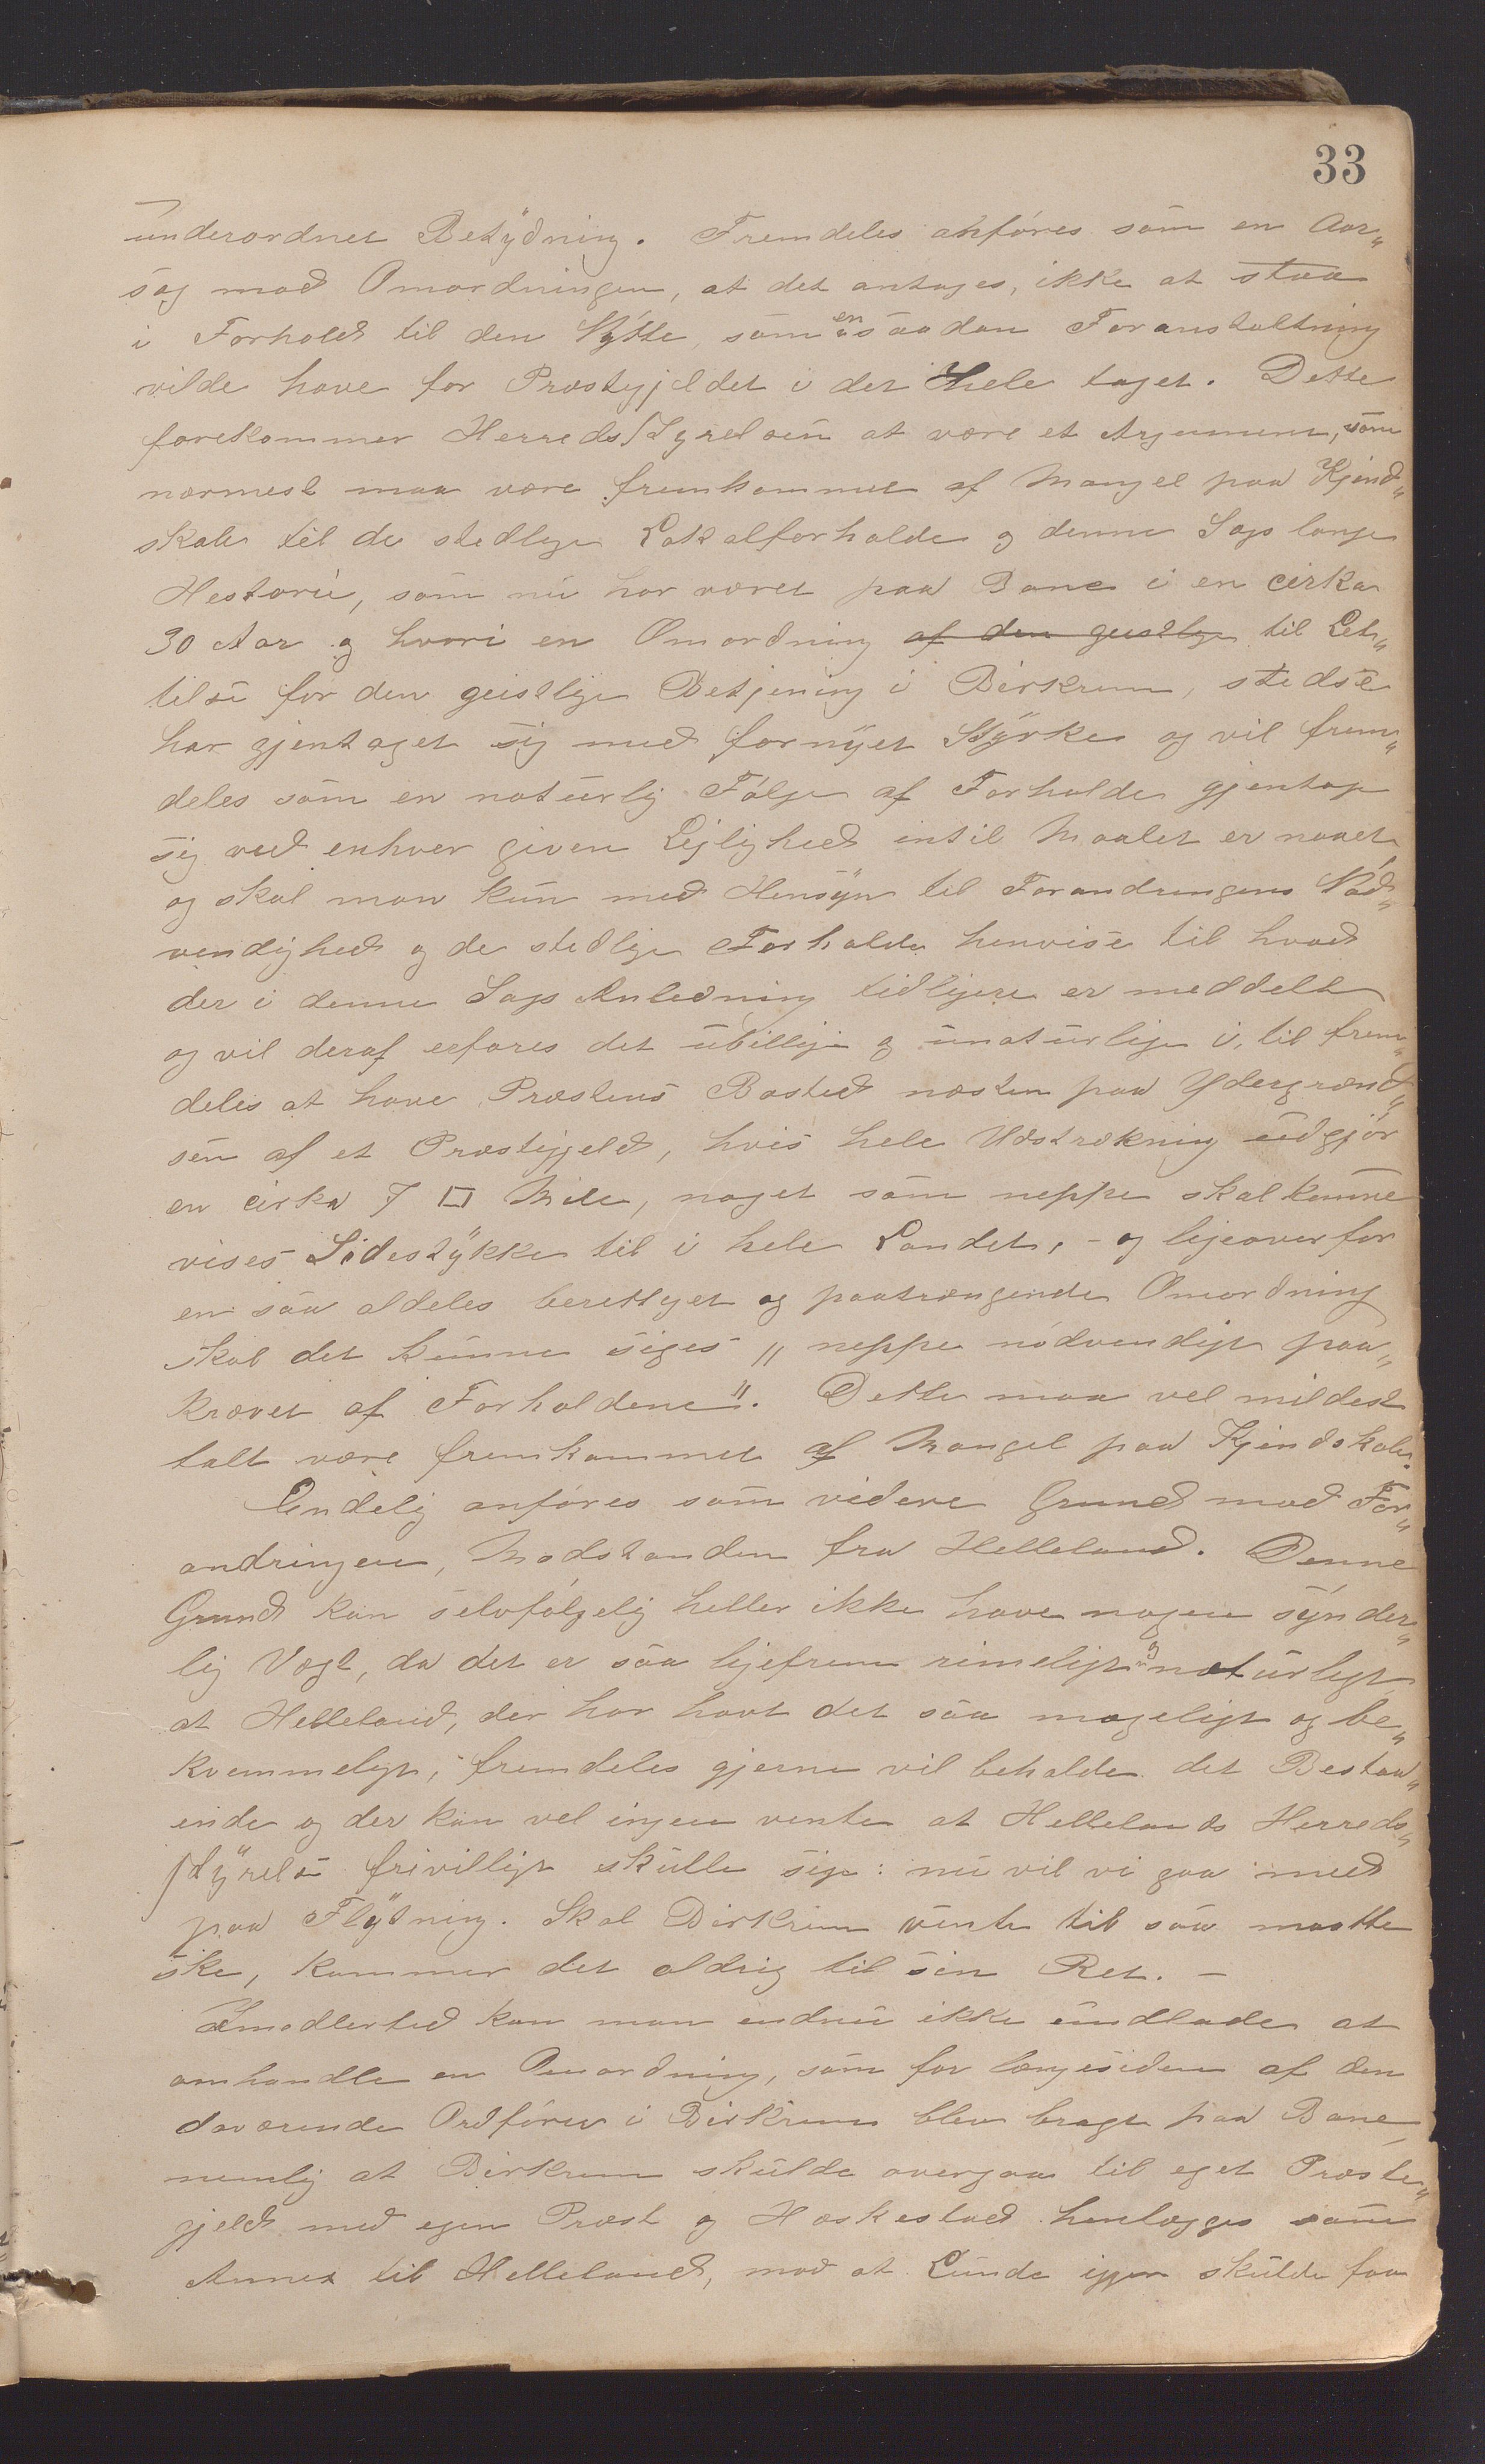 33
underordnet Betydning. Fremdeles anføres som en Aar„
sag mod Omordningen, at det antages, ikke at staa
i Forhold til den Nytte, som en saadan Foranstaltning
vilde have for Præstegjeldet i det Hele taget. Dette
forekommer Herredsstyrelsen at være et Argument, som
nærmest maa være fremkommet af Mangel paa Kjend„
skab til de stedlige Lokalforholde og denne Sags lange
Historie, som nu har været paa Bane i en cirka
30 Aar og hvori en Omordning af den geistlige til Let„
telse for den geistlige Betjening i Birkrem, stedse
har gjentaget sig med fornyet Styrke og vil frem„
deles som en naturlig Følge af Forholde gjentage
sig ved enhver given Lejlighed intil Maalet er naaet,
og skal man kun med Hensyn til Forandringens Nød„
vendighed og de stedlige Forholde henvise til hvad
der i denne Sags Anledning tidligere er meddelt
og vil deraf erfares det ubillige og unaturlige i, til frem„
deles at have Præstens Bosted næsten paa Ydergrænd„
sen af et Præstegjeld, hvis hele Udstrækning udgjør
en cirka 7 □ Mile, noget som neppe skal kunne
vises Sidestykke til i hele Landet, - og ligeoverfor
en saa aldeles berettiget og paatrængende Omordning
skal det kunne siges „neppe nødvendigt paa„
krævet af Forholdene". Dette maa vel mildest
talt være fremkommet af Mangel paa Kjendskab.
Endelig anføres som videre Grund mod For„
andringen, Modstanden fra Helleland. Denne
Grund kan selvfølgelig heller ikke have nogen synder„
lig Vægt, da det er saa ligefrem rimeligt og naturligt
at Helleland, der har havt det saa mageligt og be„
kvemmeligt, fremdeles gjerne vil beholde det Bestaa„
ende og der kan vel ingen vente at Hellelands Herreds„
styrelse frivilligt skulle sige: nu vil vi gaa med
paa Flytning. Skal Birkrem vente til saa maatte
ske, kommer det aldrig til sin Ret. —
Imidlertid kan man endnu ikke undlade at
omhandle en Omordning, som for længesiden af den
daværende Ordfører i Birkrem blev bragt paa Bane,
nemlig at Birkrem skulde overgaa til eget Præste„
gjeld med egen Præst og Heskestad henlægges som
Annex til Helleland, mod at Lunde igjen skulde faa